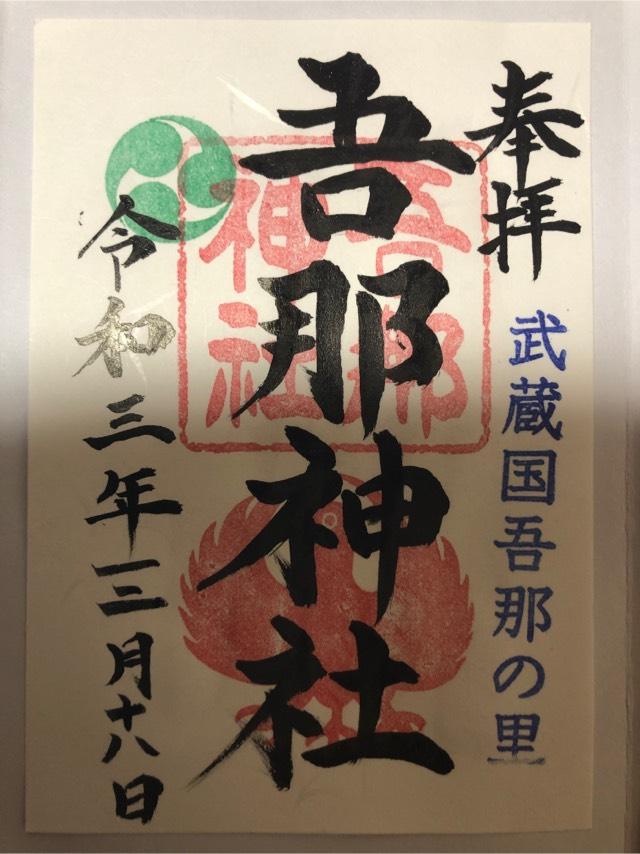 奉拝
武蔵国吾那の里
吾那神社
吾那神社
令和三年三月十八日